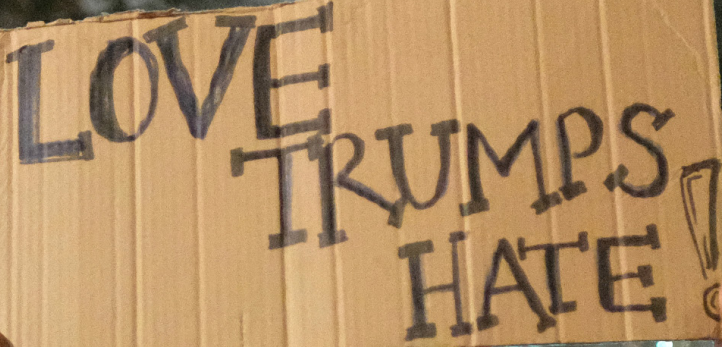 LOVE
TRUMPS
HATE!